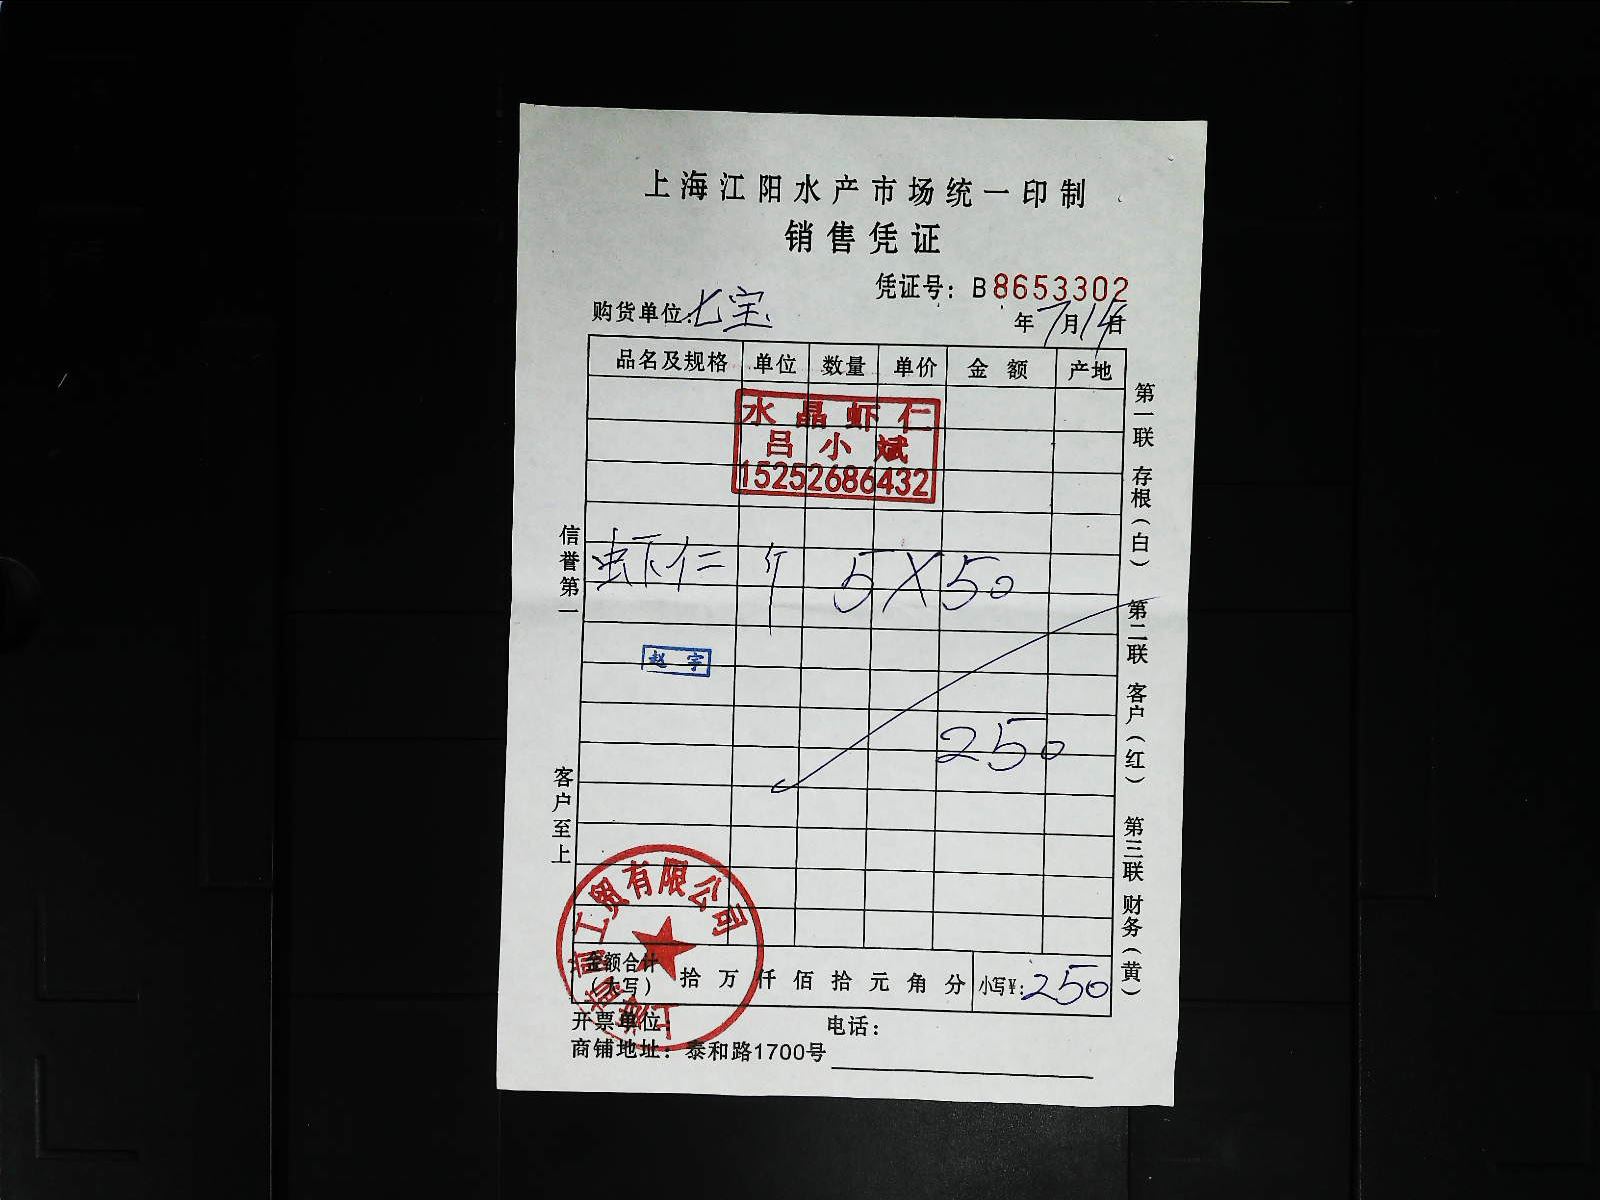 上海江阳水产市场统一印制
销售凭证
凭证号：B8653302
购货单位：七宝
年7月14日
品名及规格 单位 数量 单价 金额 产地
水晶虾仁
吕小斌
15252686432
虾仁 斤 5X50
赵宇
250
金额合计（大写） 拾万仟佰拾元角分 小写¥：250
开票单位： 电话：
商铺地址：泰和路1700号
信誉第一
客户至上
第一联 存根（白）
第二联 客户（红）
第三联 财务（黄）
工贸有限公司